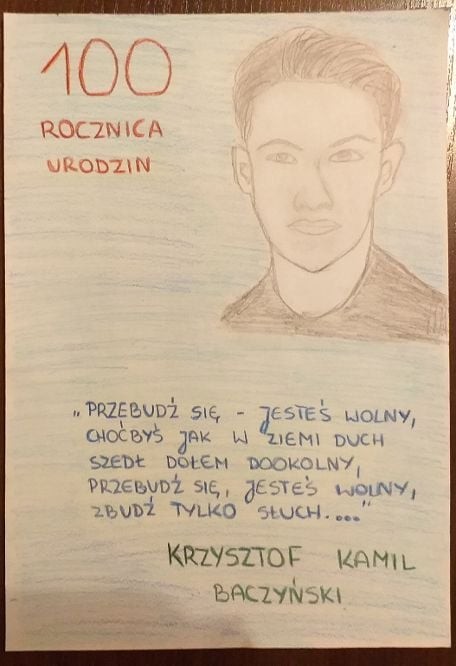 100
ROCZNICA
URODZIN
„PRZEBUDŹ SIĘ - JESTEŚ WOLNY,
CHOĆBYŚ JAK W ZIEMI DUCH
SZEDŁ DOŁEM DOOKOLNY,
PRZEBUDŹ SIĘ, JESTEŚ WOLNY,
ZBUDŹ TYLKO SŁUCH...."
KRZYSZTOF KAMIL
BACZYŃSKI